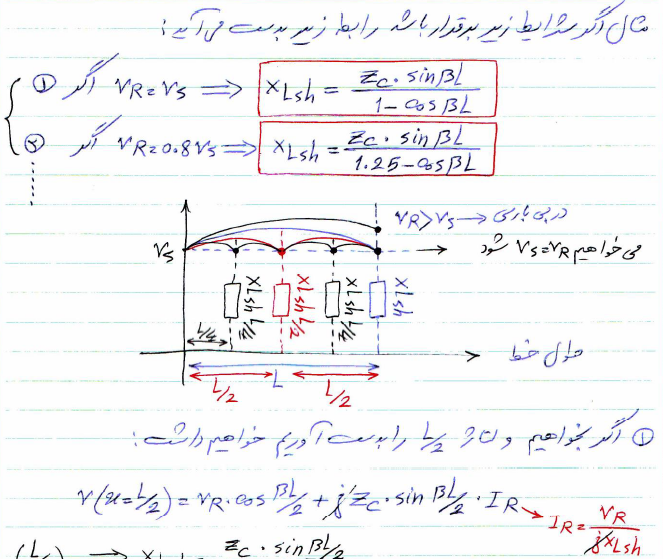 مثال اگر شرایط زیر برقرار باشد رابطه زیر بدست می آید:
① اگر VR = VS ⟹ XLsh = Zc . sin βL / 1 - cos βL
② اگر VR = 0.8VS ⟹ XLsh = Zc . sin βL / 1.25 - cos βL
VR > VS → در بی باری
VS
می خواهیم VS = VR شود
XLsh L/2
XLsh L/2
XLsh L/2
XLsh
L/2
طول خط
L
L/2
L/2
① اگر بخواهیم ولتاژ L/2 را بدست آوریم خواهیم داشت:
V(x = L/2) = VR . cos βL/2 + j Zc . sin βL/2 . IR → IR = VR / jXLsh
(L/2) → Zc . sin βL/2